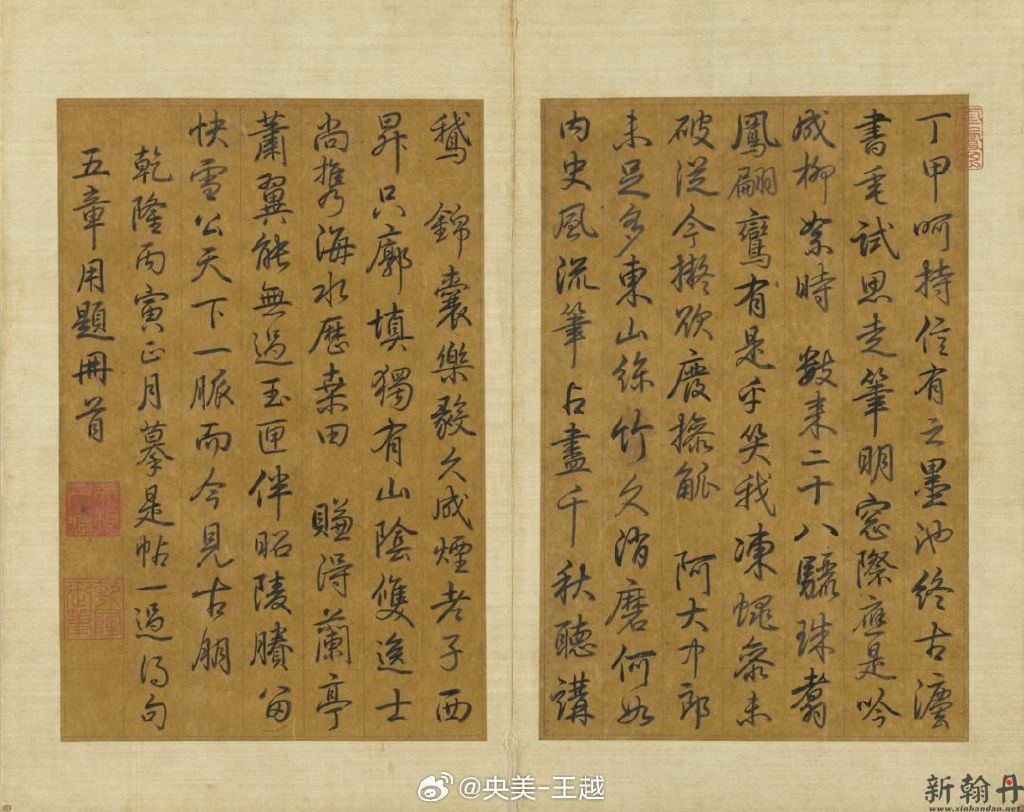 丁甲呵持信有之墨池終古灋
書垂試思走筆明窓際應是吟
成柳絮時 數来二十八驪珠翥
鳳翩鸞有是乎笑我凍蠅參未
破從今擬欲廢操觚 阿大中郎
未足多東山絲竹久消磨何如
內史風流筆占盡千秋聽講
鵝 錦囊樂毅久成煙老子西
昇只廓填獨有山陰雙逸士
尚攜海水歷桒田 賺得蘭亭
蕭翼能無過玉匣伴昭陵賸留
快雪公天下一脈而今見古朋
乾隆丙寅正月摹是帖一過得句
五章用題冊首
@央美-王越
新翰丹
www.xinhandan.net